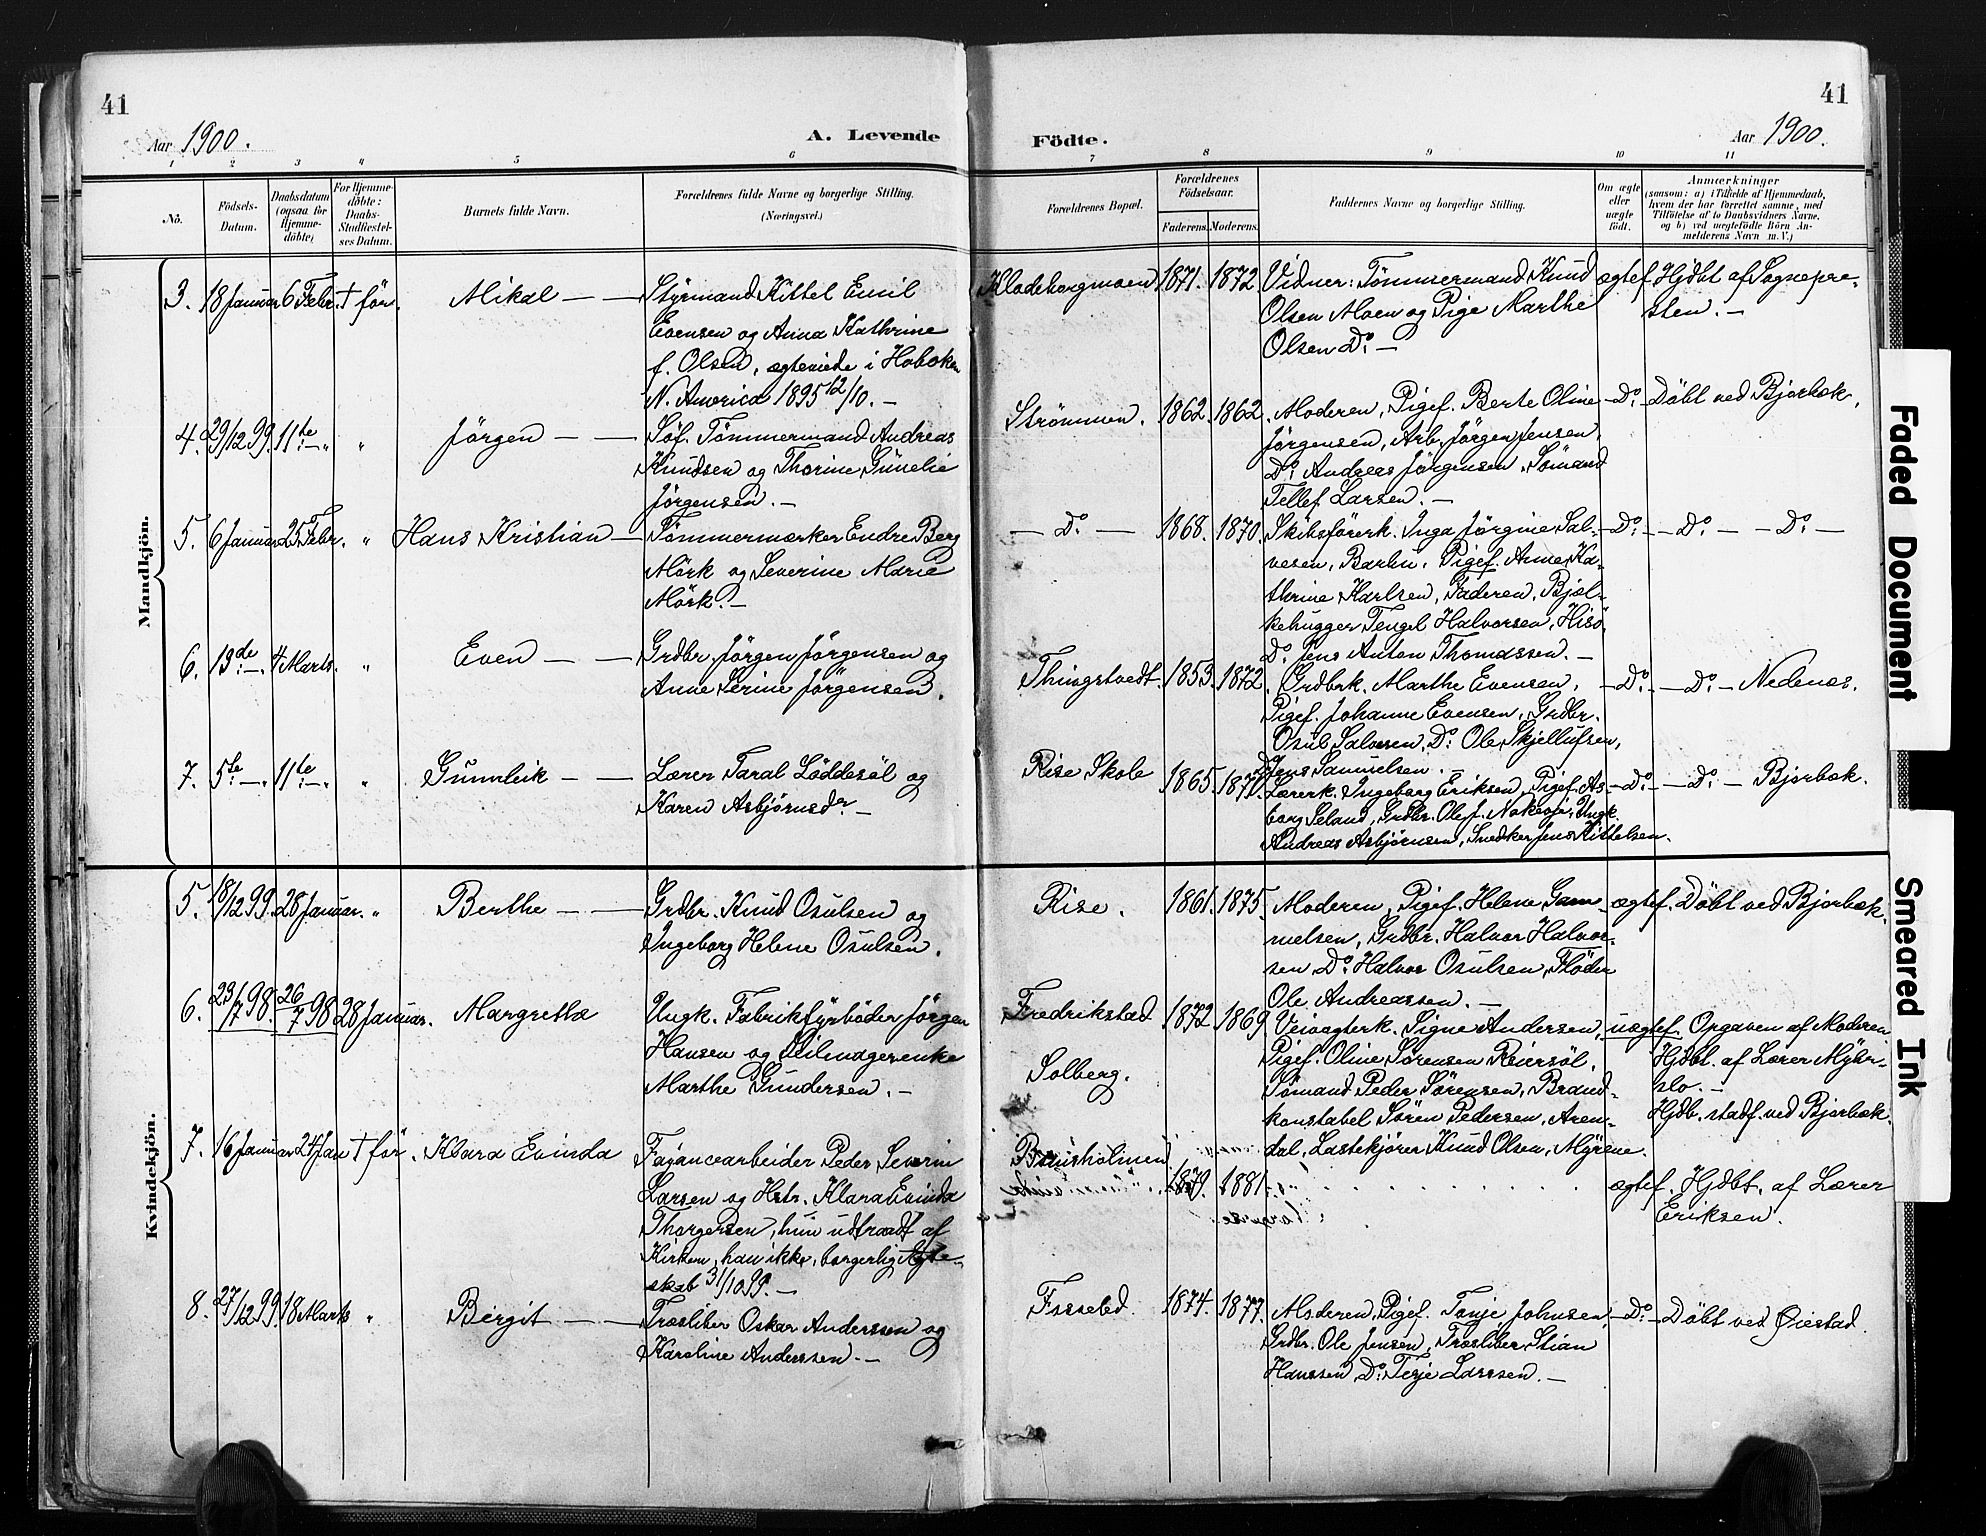 41
41
Aar 1900.
A. Levende
Födte.
Aar 1900.
1 2 3 4 5 6
7 8 9 10 11
No.
Födsels-
Datum.
Daabsdatum
(ogsaa for
Hjemme-
döbte)
For Hjemme-
döbte:
Daabs-
Stadfæstel-
ses Datum.
Barnets fulde Navn.
Forældrenes fulde Navne og borgerlige Stilling.
(Næringsvei.)
Forældrenes Bopæl.
Forældrenes
Födselsaar.
Faderens.
Moderens.
Faddernes Navne og borgerlige Stilling.
Om ægte
eller
uægte
födt.
Anmærkninger
(saasom: a) i Tilfælde af Hjemmedaab,
hvem der har forrettet samme, med
Tilföielse af to Daabsvidners Navne,
og b) ved uægtefödte Börn An-
melderens Navn m. V.)
Mandkjön.
3. 18 Januar 6 Febr. † før. Mikal
Styrmand Kittel Emil
Evensen og Anna Kathrine
f. Olsen, ægteviede i Hoboken
N. America 1895 12/10. —
Klodeborgmoen 1871. 1872
Vidner: Tømmermand Knud
Olsen Moen og Pige Marthe
Olsen Do. —
ægtef. Hjdbt af Sognepre-
sten. —
4. 29/12 99. 11te — " " Jørgen
Søf. Tömmermand Andreas
Knudsen og Thorine Gunelie
Jørgensen. —
Strömmen. 1862. 1862.
Moderen, Pigef. Berte Oline
Jørgensen, Arb. Jørgen Jensen,
Do. Andreas Jørgensen, Sømand
Tellef Larsen. —
Do. Döbt ved Bjorbæk.
5. 6 Januar 25 Febr. " Hans Kristian
Tømmermærker Endre Berg
Mörk og Severine Marie
Mörk. —
— Do. — 1868. 1870.
Skibsförerk. Inga Jørgine Sal-
vesen, Barbu, Pigef. Anne Ka-
thrine Karlsen, Faderen, Bjæl-
kehugger Tengel Halvorsen, Hisö,
Do. Jens Anton Thomassen. —
— Do. — — Do. — — Do. —
6. 13de — 4 Marts. " Even
Grdbr. Jørgen Jørgensen og
Anne Serine Jørgensen.
Thingstvedt. 1853. 1872.
Grdbrk. Marthe Evensen,
Pigef. Johanne Evensen, Grdbr.
Osul Salvesen, Do. Ole Skjellufsen,
Jens Samuelsen. —
— Do. — — Do. — Nedenæs.
7. 5te — 11te — " Gunnleik
Lærer Taral Löddesöl og
Karen Asbjørnsdr —
Rise Skole 1865. 1871.
Lærerk. Ingeborg Eriksen, Pigef. As-
borg Seland, Grdbr. Ole J. Nakevje, Ungk.
Andreas Asbjørnsen, Snedker Jens Kittelsen.
— Do. — — Do. — Bjorbæk.
Kvindekjön.
5. 18/12 99. 28 Januar. " Berthe
Grdbr. Knud Osulsen og
Ingeborg Helene Osulsen.
Rise. 1861. 1875.
Moderen, Pigef. Helene Gam-
melsen, Grdbr. Halvor Halvor-
sen Do. Halvor Osulsen, Flöder
Ole Andreassen. —
ægtef. Döbt ved Bjorbæk.
6. 23/7 98. 26/7 98 28 Januar. Margrethe
Ungk. Fabrikfyrböder Jørgen
Hansen og Seilmagerenke
Marthe Gundersen. —
Fredrikstad
Solberg. 1872. 1869
Veivogterk. Signe Andersen,
Pigef. Oline Sørensen Reiersöl,
Sömand Peder Sørensen, Brand-
konstabel Sören Pedersen, Aren-
dal, Lastekjører Knud Olsen, Myrene.
uægtef. Opgaven af Moderen
Hjdbt. af Lærer Myhr-
slo. —
Hjdb. stadf. ved Bjorbæk.
7. 16 Januar 24 Jan † før. Klara Evinda
Fajancearbeider Peder Severin
Larsen og Hstr. Klara Evinda
Thorgersen, hun udtraadt af
Kirken, han ikke, borgerlig Ægte-
skab 31/10 99. —
1879. 1881.
ægtef. Hjdbt. af Lærer
Eriksen.
8. 27/12 99 18 Marts " Birgit
Træsliber Oskar Anderssen og
Karoline Anderssen. —
Fossebed. 1874. 1877.
Moderen, Pigef. Tonje Johnsen,
Grdbr. Ole Jensen, Træsliber Stian
Hanssen, Do. Terje Larssen. —
— Do. — Döbt ved Øiestad
Faded Document
Smeared Ink